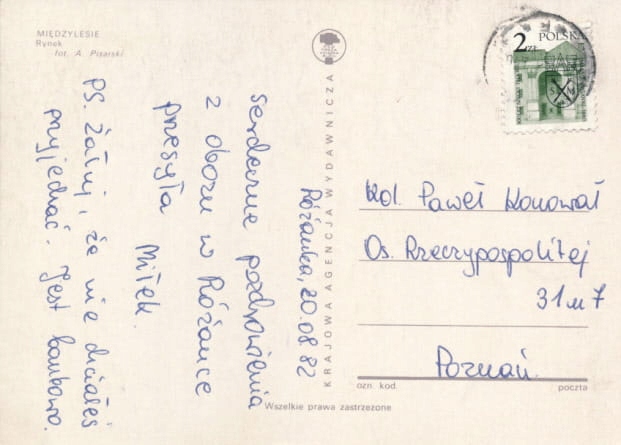 MIĘDZYLESIE
Rynek
fot. A. Pisarski
KRAJOWA AGENCJA WYDAWNICZA
Różanka, 20.08.82
Serdeczne pozdrowienia
z obozu w Różance
przesyła
Miłek.
PS. Żałuj, że nie chciałeś
przyjechać. Jest bombowo.
2 ZŁ POLSKA
Kol. Paweł Konował
Os. Rzeczypospolitej
31 m 7
Poznań.
ozn. kod. poczta
Wszelkie prawa zastrzeżone